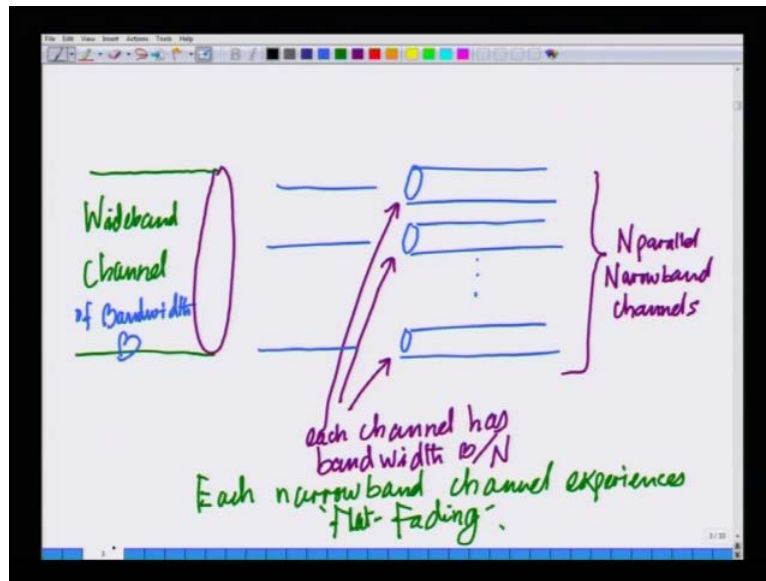 File Edit View Insert Actions Tools Help
Wideband
Channel
of Bandwidth
B
N parallel
Narrowband
channels
each channel has
bandwidth B/N
Each narrowband channel experiences
"Flat-Fading".
3